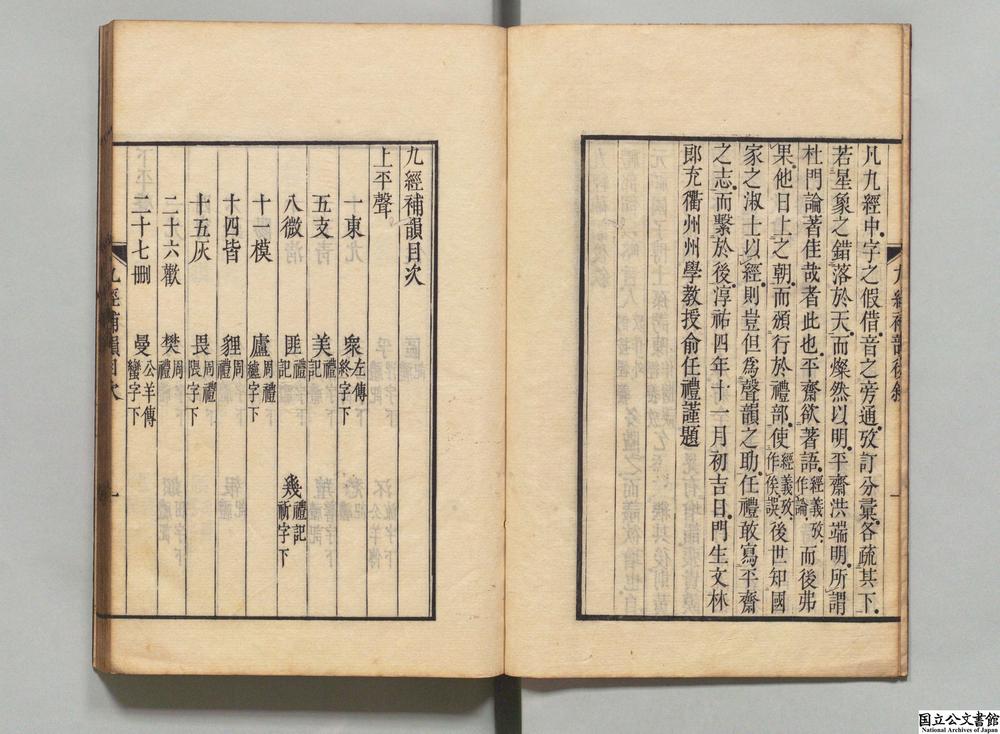 凡九經中字之假借音之旁通攷訂分彙各疏其下
若星象之錯落於天而燦然以明平齋洪端明所謂
杜門論著佳哉者此也平齋欲著語經義攷作論而後弗
果他日上之朝而頒行於禮部使經義攷作俟誤後世知國
家之淑士以經則豈但為聲韻之助任禮敢寫平齋
之志而繫於後淳祐四年十一月初吉日門生文林
郎充衢州州學教授俞任禮謹題
九經補韻後叙
一
九經補韻目次
上平聲
一東 衆左傳終字下
五支 美禮記
八微 匪禮記 幾禮記祈字下
十一模 廬周禮纑字下
十四皆 貍周禮
十五灰 畏周禮隈字下
二十六歡 樊周禮
二十七刪 曼公羊傳蠻字下
九經補韻目次
一
国立公文書館
National Archives of Japan